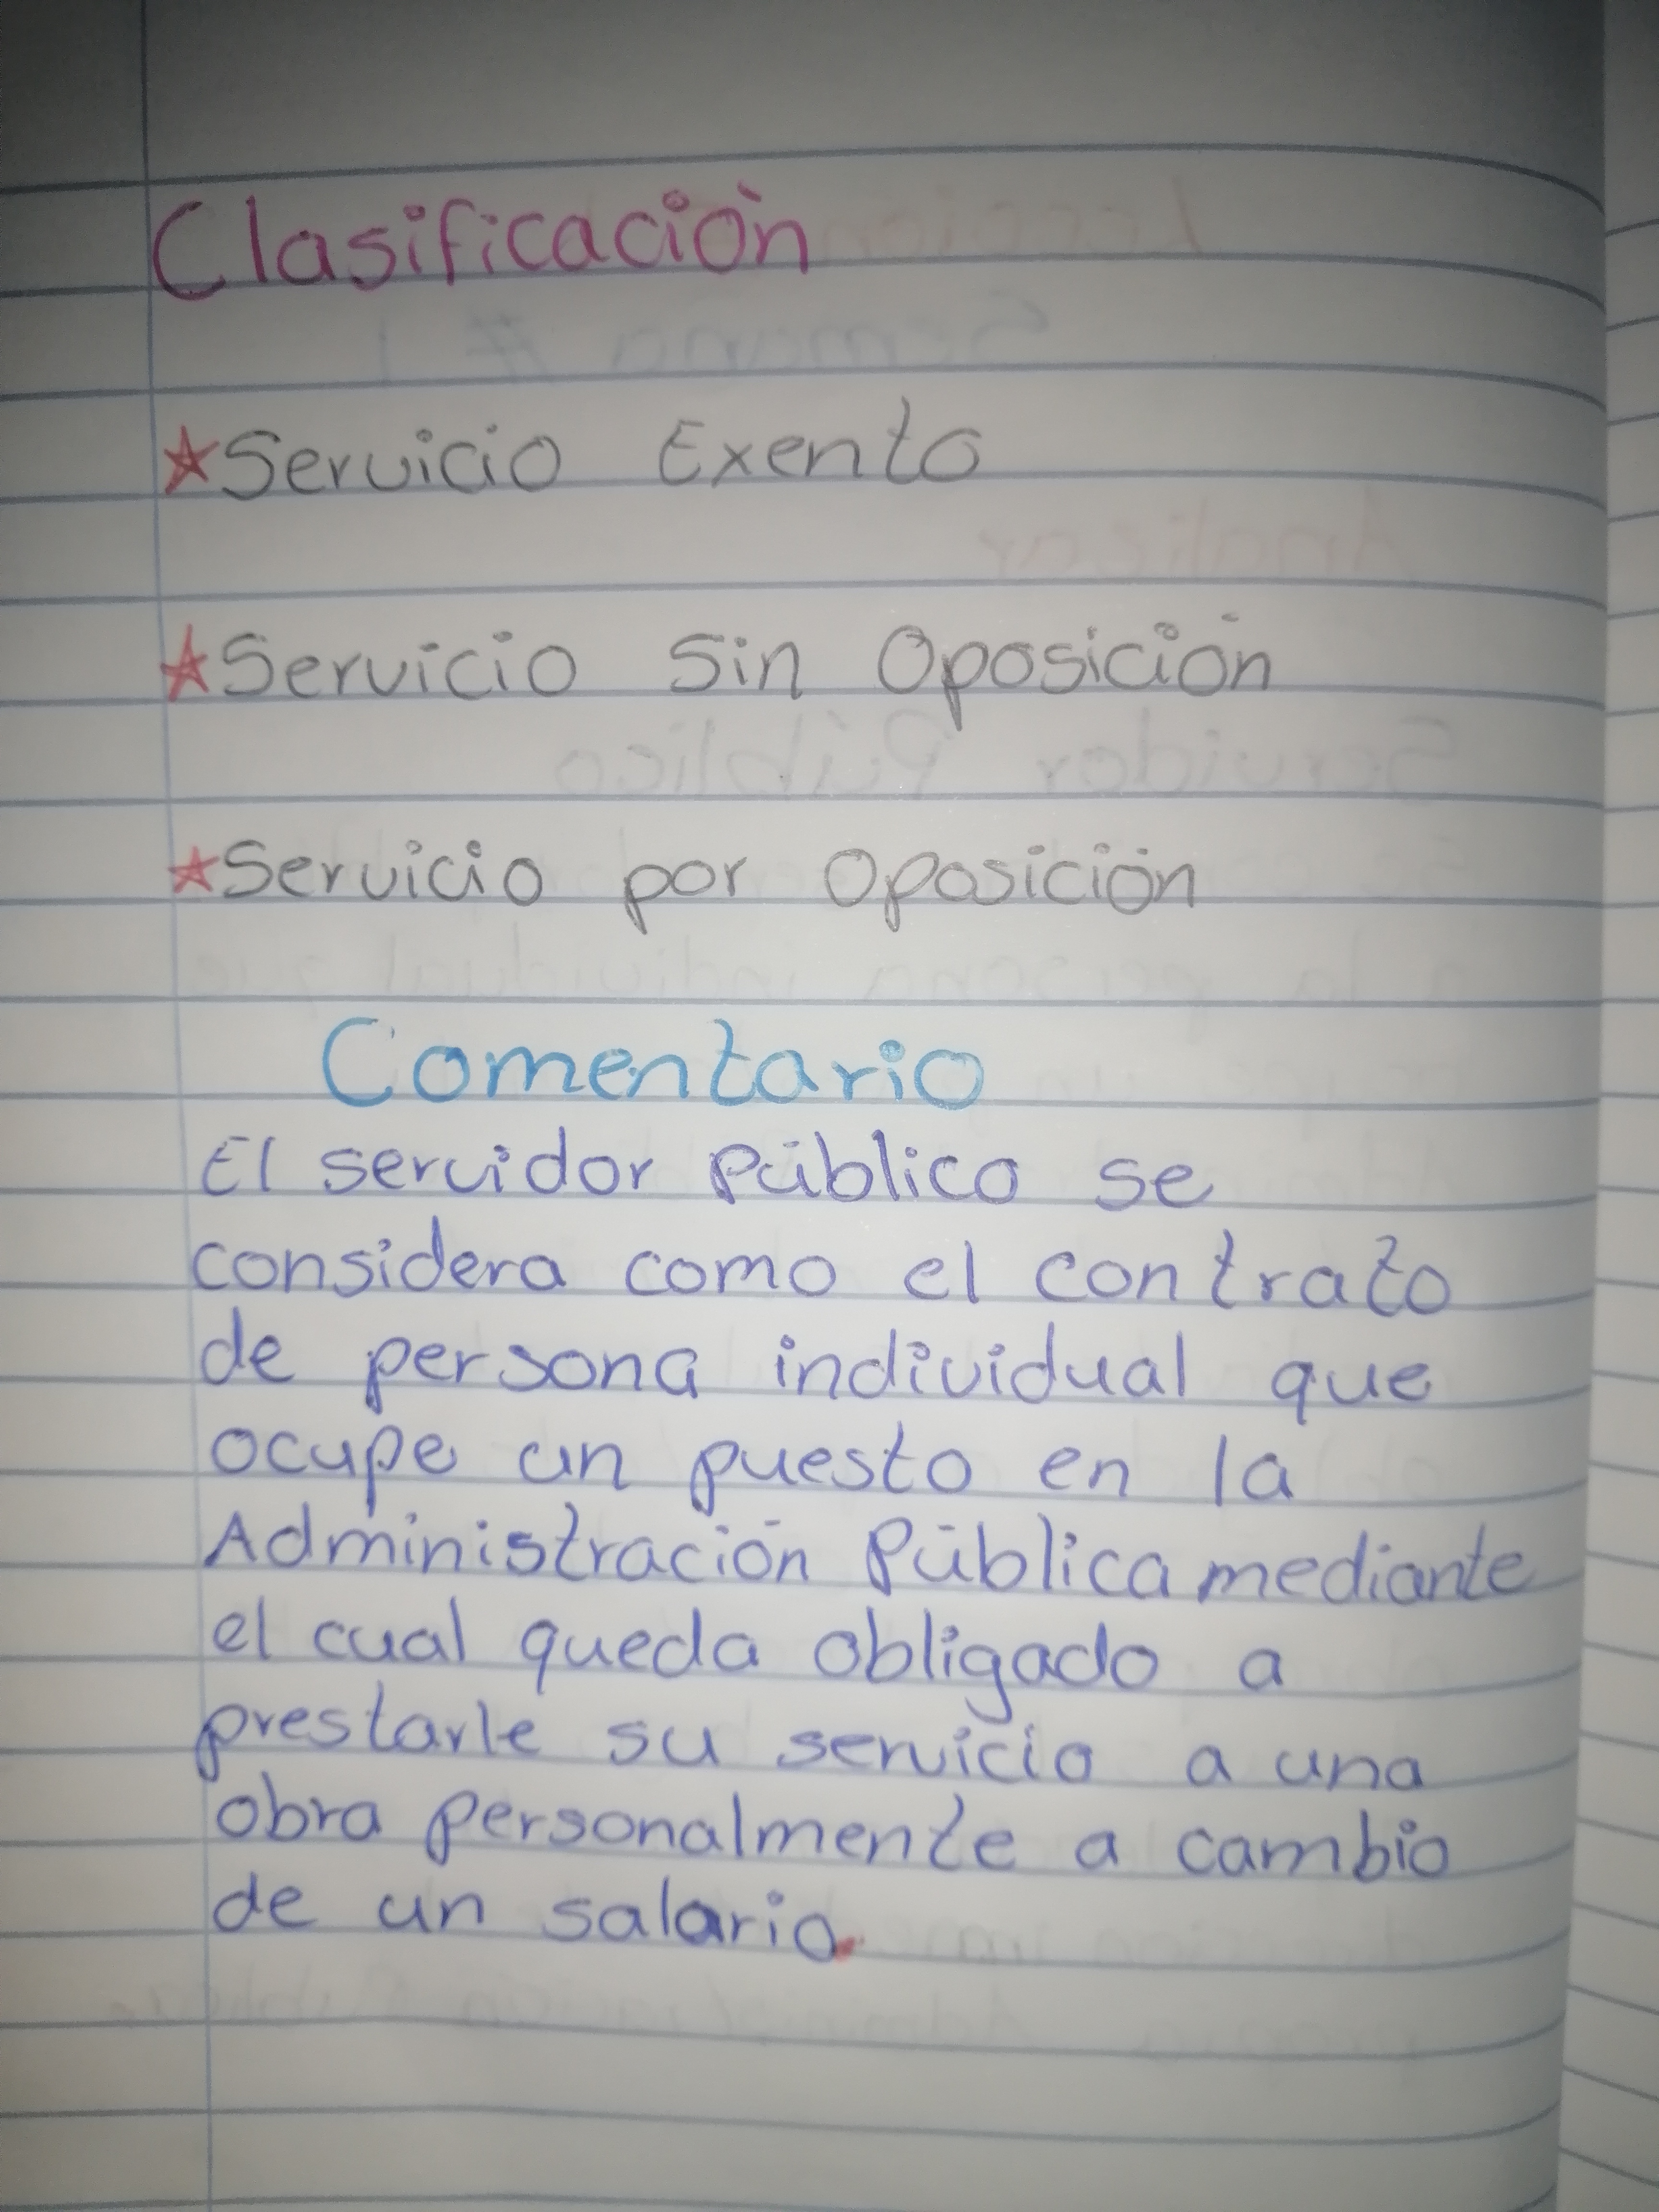 Clasificación
★Servicio Exento
★Servicio Sin Oposición
★Servicio por Oposición
Comentario
El servidor Público se
considera como el contrato
de persona individual que
ocupe un puesto en la
Administración Pública mediante
el cual queda obligado a
prestarle su servicio a una
obra personalmente a cambio
de un salario.